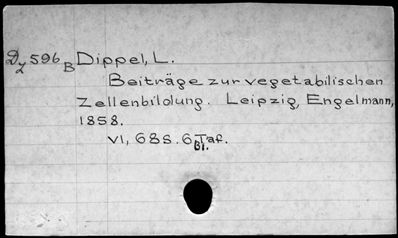 Dz 596 B Dippel, L.
Beiträge zur vegetabilischen
Zellenbildung. Leipzig, Engelmann,
1858.
VI, 68 S. 6 Taf.
Bl.